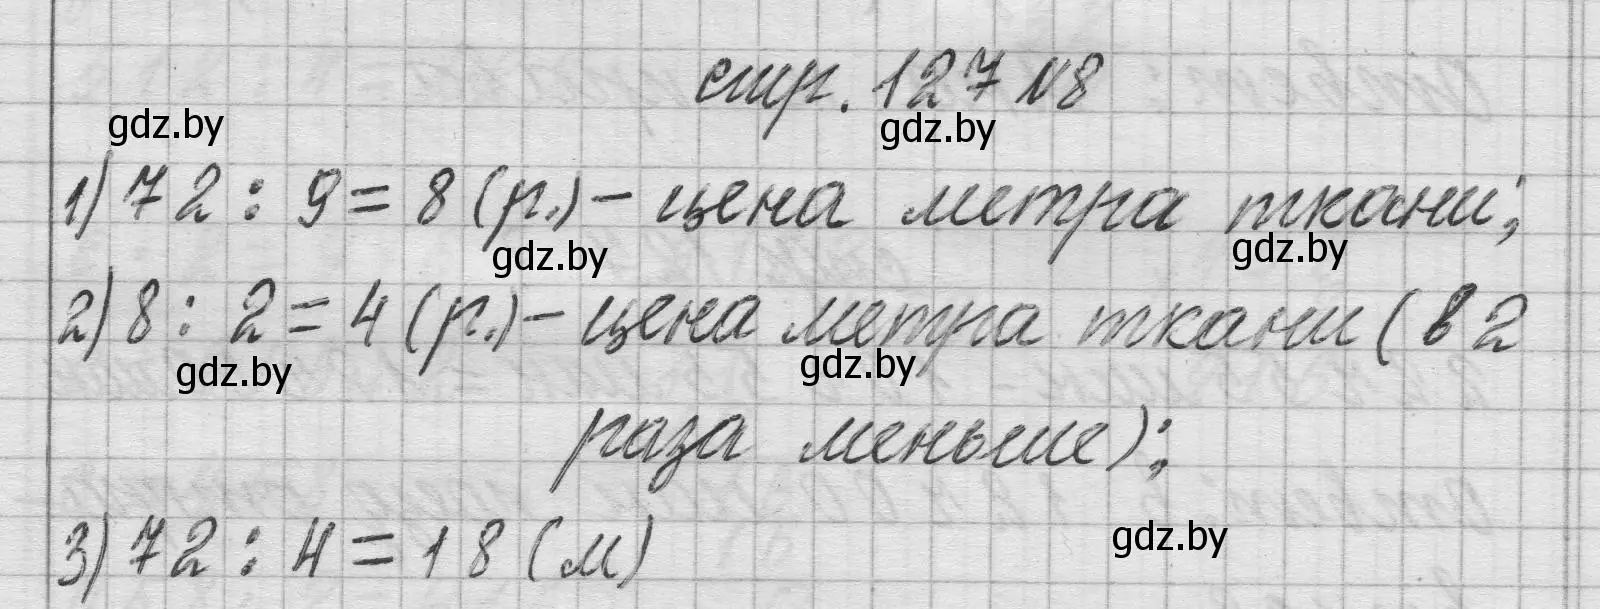 стр. 127 №8
gdz.by
gdz.by
1) 72 : 9 = 8 (р.) – цена метра ткани;
gdz.by
gdz.by
2) 8 : 2 = 4 (р.) – цена метра ткани (в 2
gdz.by
gdz.by
раза меньше);
3) 72 : 4 = 18 (м)
gdz.by